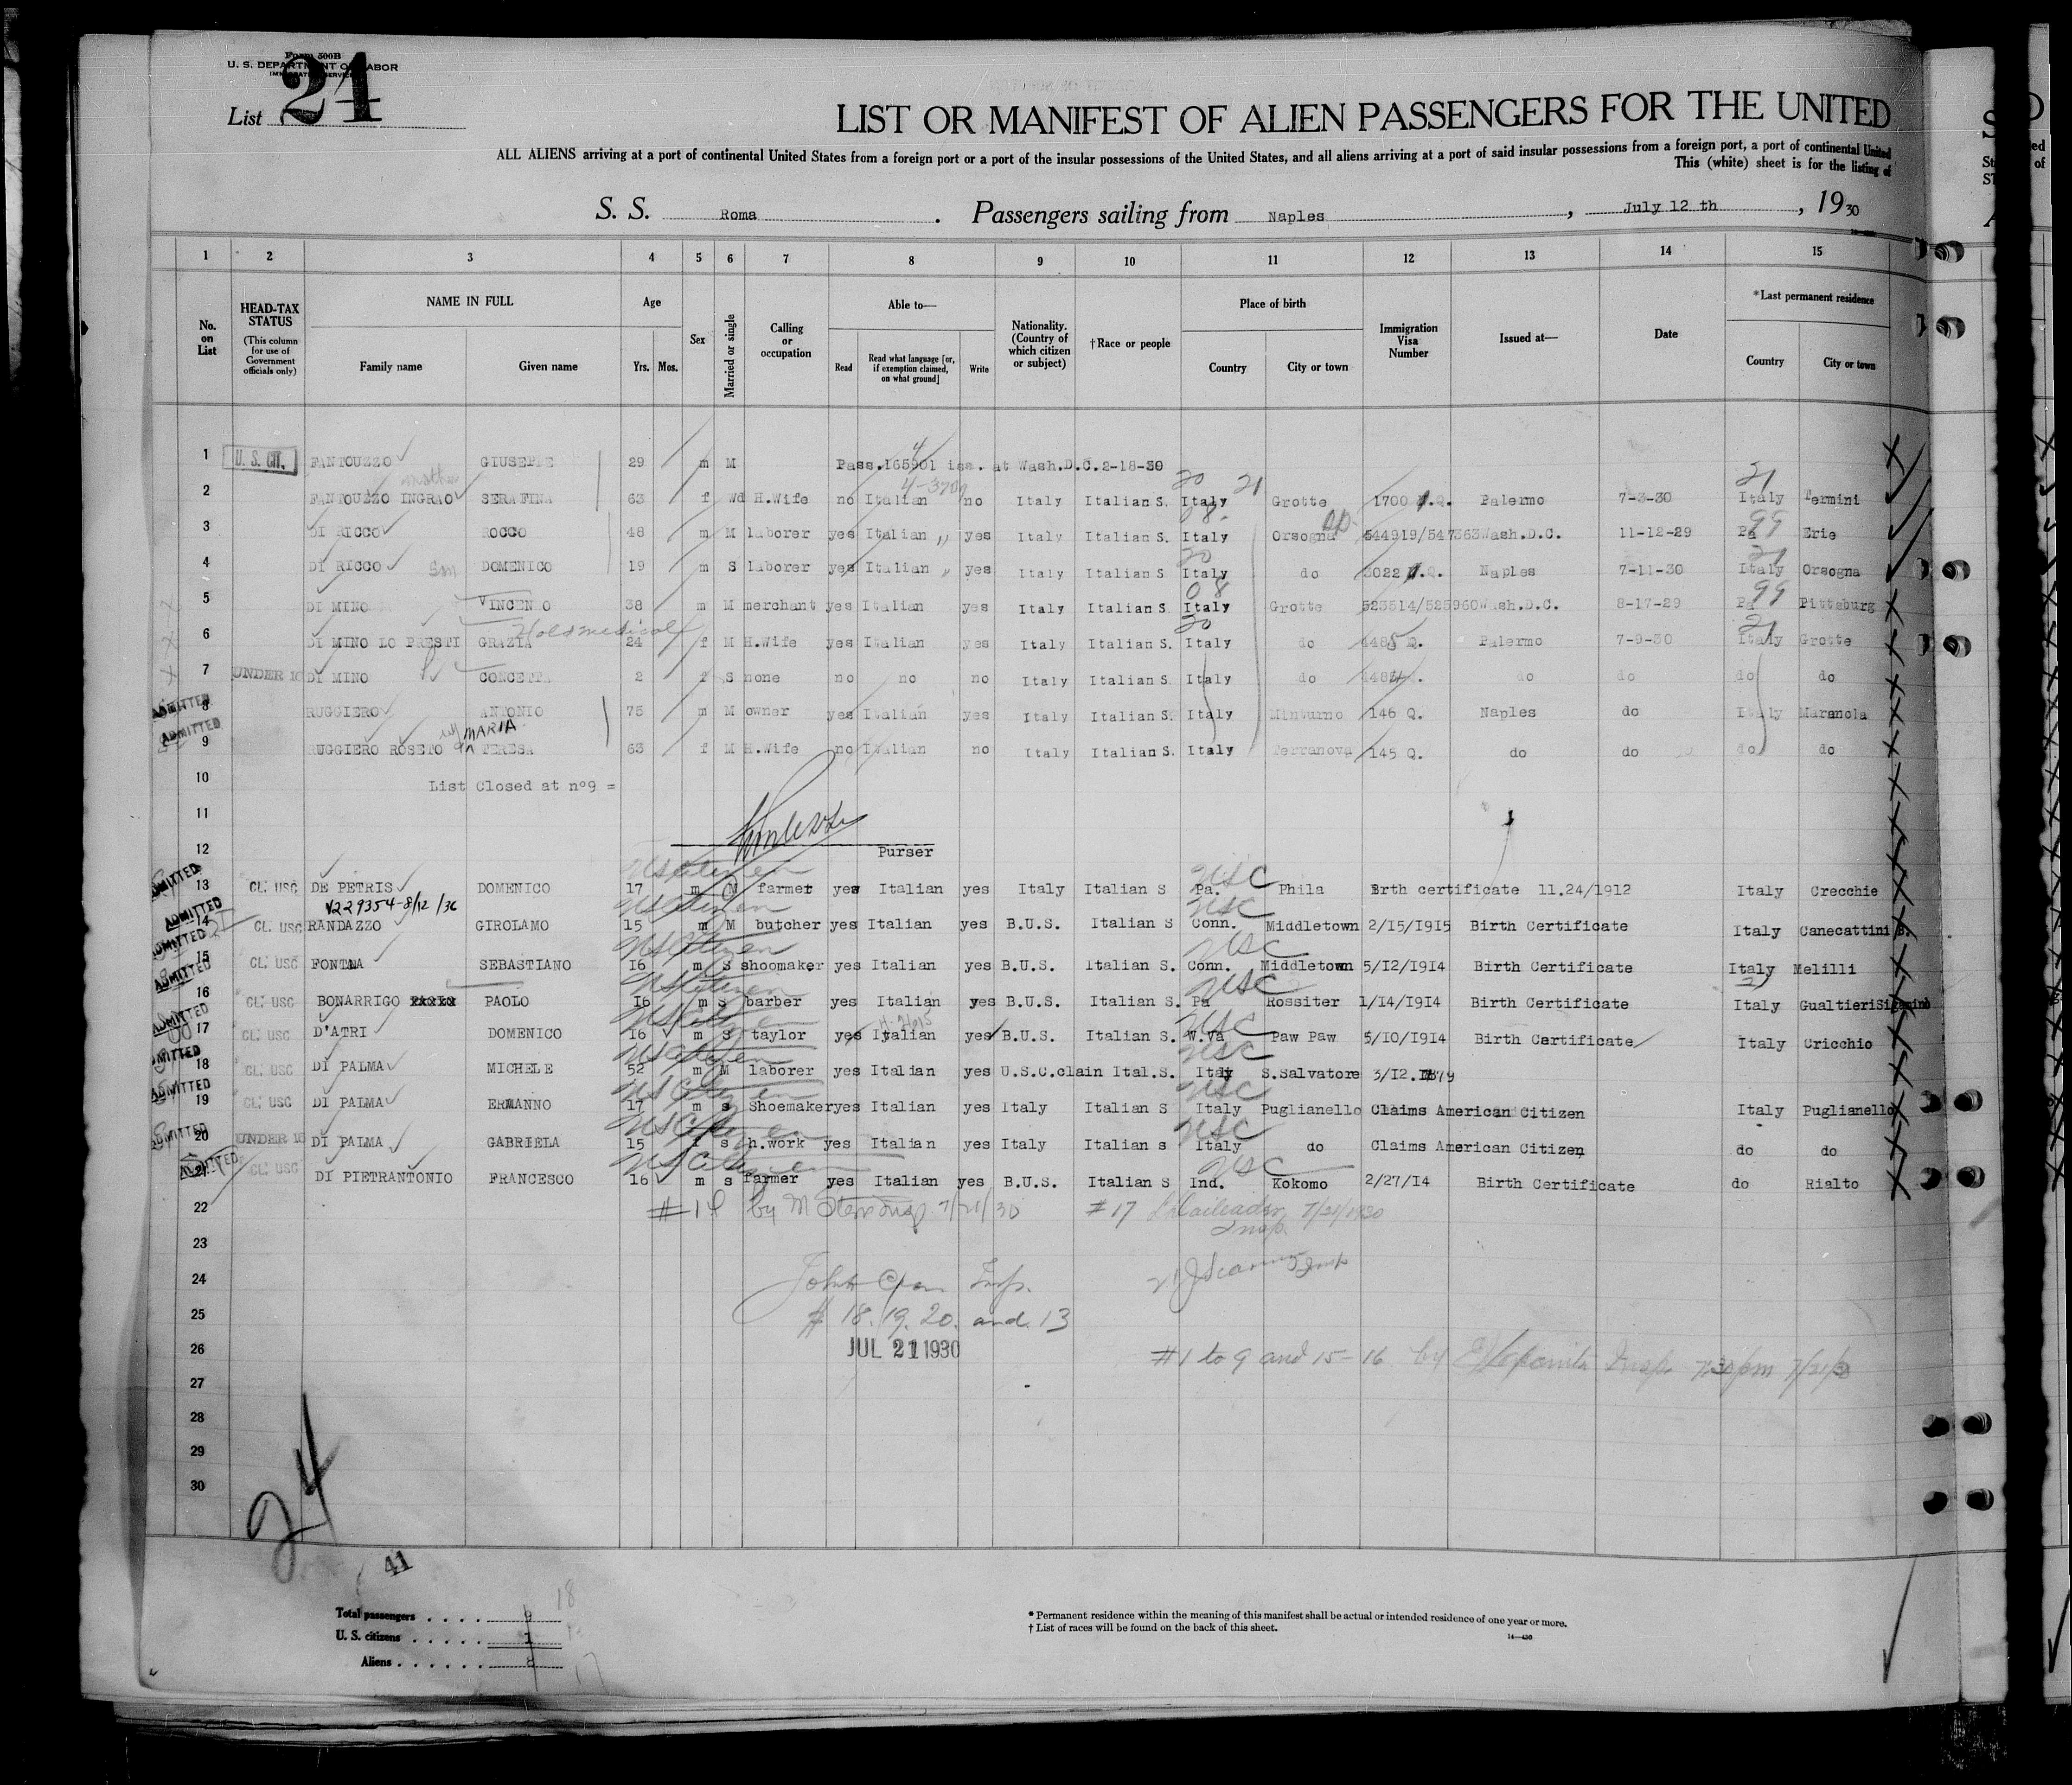 Form 500B
U. S. DEPARTMENT OF LABOR
IMMIGRATION SERVICE
List 24
LIST OR MANIFEST OF ALIEN PASSENGERS FOR THE UNITED
ALL ALIENS arriving at a port of continental United States from a foreign port or a port of the insular possessions of the United States, and all aliens arriving at a port of said insular possessions from a foreign port, a port of continental United
This (white) sheet is for the listing of
S. S. Roma . Passengers sailing from Naples , July 12 th , 1930
1 2 3 4 5 6 7 8 9 10 11 12 13 14 15
No. on List HEAD-TAX STATUS (This column for use of Government officials only) NAME IN FULL Family name Given name Age Yrs. Mos. Sex Married or single Calling or occupation Able to— Read Read what language [or, if exemption claimed, on what ground] Write Nationality. (Country of which citizen or subject) †Race or people Place of birth Country City or town Immigration Visa Number Issued at— Date *Last permanent residence Country City or town
1 U. S. CIT. FANTOUZZO GIUSEPPE 29 m M Pass.165901 iss. at Wash.D.C.2-18-30
mother 4-3209 20 21 21
2 FANTOUZZO INGRAO SERAFINA 63 f Wd H.Wife no Italian no Italy Italian S. Italy Grotte 1700 Q. Palermo 7-3-30 Italy Termini
08 99
3 DI RICCO ROCCO 48 m M laborer yes Italian yes Italy Italian S. Italy Orsogna 544919/547363 Wash.D.C. 11-12-29 Pa Erie
20 21
4 DI RICCO son DOMENICO 19 m S laborer yes Italian yes Italy Italian S Italy do 3022 Q. Naples 7-11-30 Italy Orsogna
08 99
5 DI MINO VINCENZO 38 m M merchant yes Italian yes Italy Italian S. Italy Grotte 523514/525960 Wash.D.C. 8-17-29 Pa Pittsburg
Hold medical 20 21
6 DI MINO LO PRESTI GRAZIA 24 f M H.Wife yes Italian yes Italy Italian S. Italy do 4485 Q. Palermo 7-9-30 Italy Grotte
7 UNDER 16 DI MINO CONCETTA 2 f S none no no no Italy Italian S. Italy do 4484 . do do do do
ADMITTED 8 RUGGIERO ANTONIO 75 m M owner yes Italian yes Italy Italian S. Italy Minturno 146 Q. Naples do Italy Maranola
MARIA
ADMITTED 9 RUGGIERO ROSETO TERESA 63 f M H.Wife no Italian no Italy Italian S. Italy Terranova 145 Q. do do do do
10 List Closed at n°9 =
11
12 Purser
US Citizen USC
ADMITTED 13 CL: USC DE PETRIS DOMENICO 17 m M farmer yes Italian yes Italy Italian S Pa. Phila Brth certificate 11.24/1912 Italy Crecchie
V229354-8/12/36 US Citizen USC
ADMITTED 14 CL: USC RANDAZZO GIROLAMO 15 m M butcher yes Italian yes B.U.S. Italian S Conn. Middletown 2/15/1915 Birth Certificate Italy Canecattini B.
US Citizen USC
ADMITTED 15 CL: USC FONTANA SEBASTIANO 16 m S shoomaker yes Italian yes B.U.S. Italian S. Conn. Middletown 5/12/1914 Birth Certificate Italy Melilli
US Citizen USC
ADMITTED 16 CL: USC BONARRIGO PAOLO 16 m S barber yes Italian yes B.U.S. Italian S. Pa Rossiter 1/14/1914 Birth Certificate Italy GualtieriSicamino
US Citizen USC
ADMITTED 17 CL: USC D'ATRI DOMENICO 16 m S taylor yes Italian yes B.U.S. Italian S. W.Va Paw Paw 5/10/1914 Birth Certificate Italy Cricchio
US Citizen USC
ADMITTED 18 CL: USC DI PALMA MICHELE 52 m M laborer yes Italian yes U.S.C.clain Ital.S. Italy S.Salvatore 3/12.1879
US Citizen USC
ADMITTED 19 CL: USC DI PALMA ERMANNO 17 m s Shoemaker yes Italian yes Italy Italian S Italy Puglianello Claims American Citizen Italy Puglianello
US Citizen USC
ADMITTED 20 UNDER 16 DI PALMA GABRIELA 15 f s h.work yes Italian yes Italy Italian s Italy do Claims American Citizen do do
US Citizen USC
ADMITTED 21 CL: USC DI PIETRANTONIO FRANCESCO 16 m s farmer yes Italian yes B.U.S. Italian S Ind. Kokomo 2/27/14 Birth Certificate do Rialto
22 #14 by M Stern Insp 7/21/30 #17 7/21/1930
Insp.
23
24 John Insp.
25 # 18. 19. 20. and 13
26 JUL 21 1930 #1 to 9 and 15-16 by Insp 7:30pm 7/21/30
27
28
29
30
24
41
18
Total passengers . . . . 9
U. S. citizens . . . . . 1
Aliens . . . . . . 8
17
* Permanent residence within the meaning of this manifest shall be actual or intended residence of one year or more.
† List of races will be found on the back of this sheet.
14—430